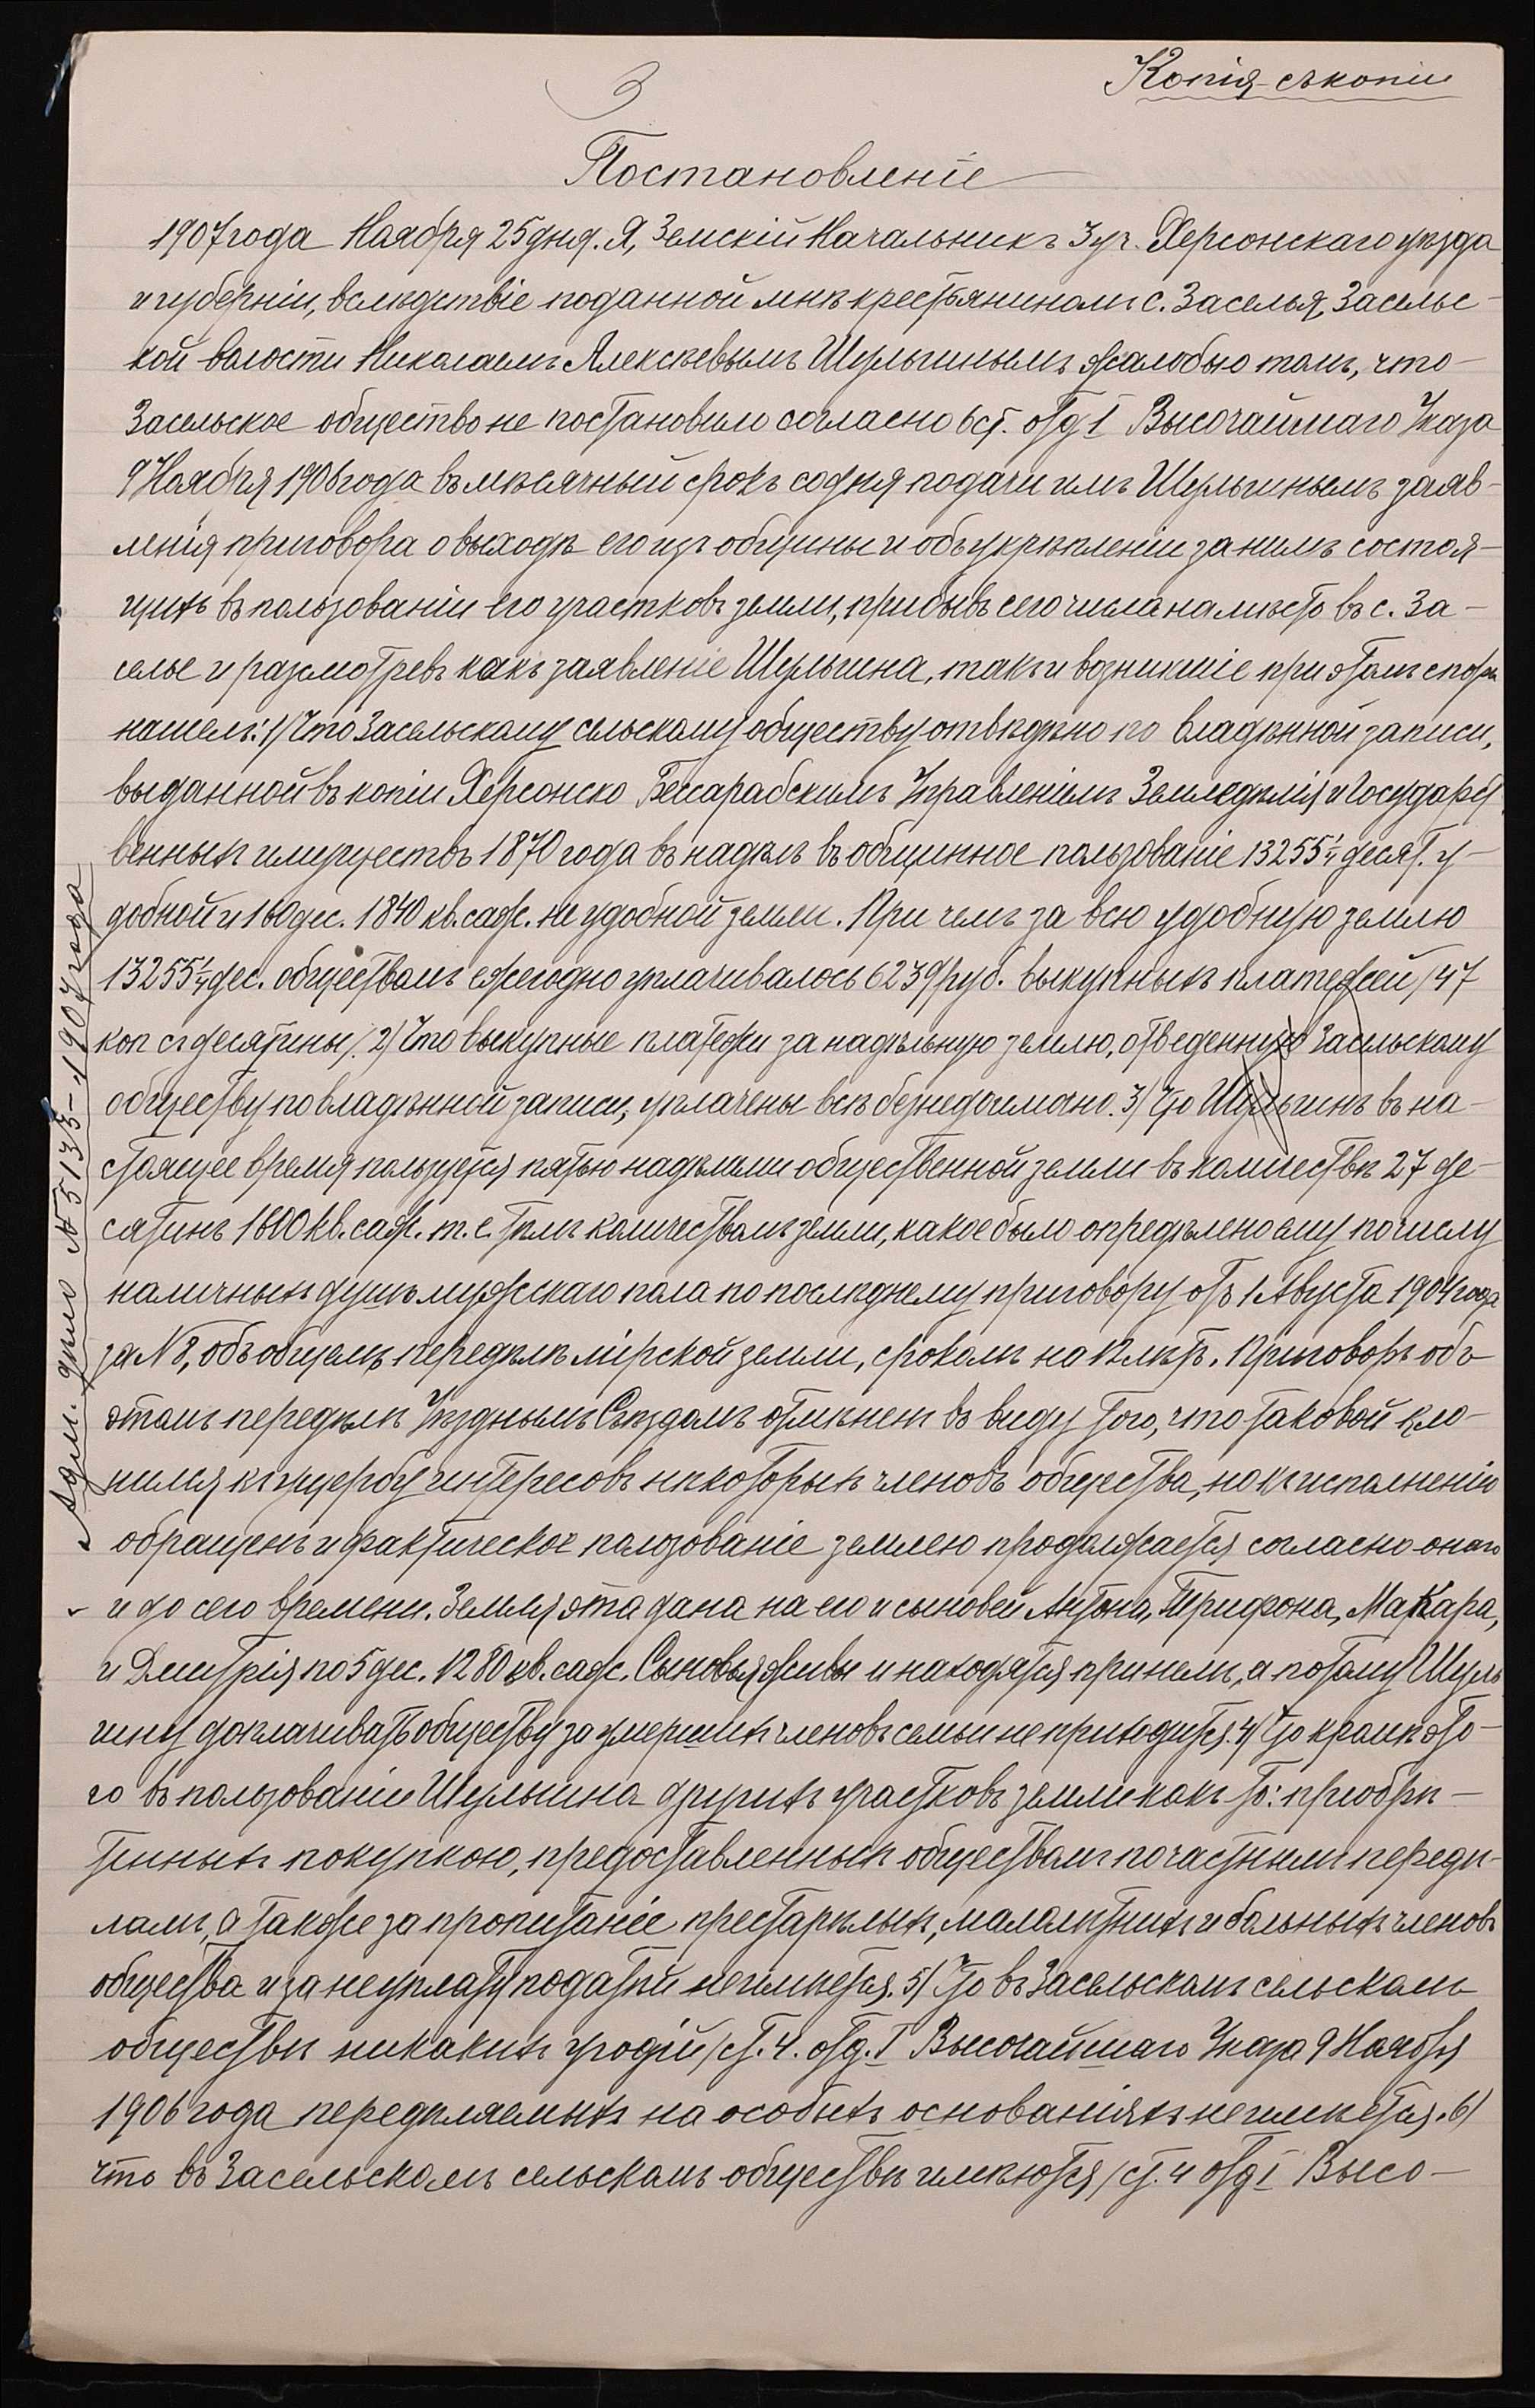 3
Копія съ копіи
Постановленіе
1907 года Ноября 25 дня. Я, Земскій Начальникъ 3 уч. Херсонскаго уѣзда
и губерніи, вслѣдствіе поданной мнѣ крестьяниномъ с. Заселья, Засельс-
кой волости Николаемъ Алексѣевымъ Шульгинымъ жалобы о томъ, что
Засельское общество не постановило согласно 6 ст. отд I Высочайшаго Указа
9 Ноября 1906 года въ мѣсячный срокъ со дня подачи имъ Шульгинымъ заяв-
ленія приговора о выходѣ его изъ общины и объ укрѣпленіи за нимъ состоя-
щихъ въ пользованіи его участковъ земли, прибывъ сего числа на мѣсто въ с. За-
селье и разсмотревъ какъ заявленіе Шульгина, такъ и возникшіе при этомъ споры
нашелъ: 1) Что Засельскому сельскому обществу отведено по владѣнной записи,
выданной въ копіи Херсонско Бессарабскимъ Управленіемъ Земледѣлія и Государст
венныхъ имуществъ 1870 года въ надѣлъ въ общинное пользованіе 13255 1/4 десят. у-
добной и 160 дес. 1840 кв. саж. не удобной земли. При чемъ за всю удобную землю
13255 1/4 дес. обществомъ ежегодно уплачивалось 6239 руб. выкупныхъ платежей /47
коп съ десятины/. 2) Что выкупные платежи за надѣльную землю, отведенную Засельскому
обществу по владѣнной записи, уплачены всѣ бездоимочно. 3) Что Шульгинъ въ на-
стоящее время пользуется пятью надѣлами общественной земли въ количествѣ 27 де-
сятинъ 1600 кв. саж. т. е. тѣмъ количествомъ земли, какое было опредѣлено ему по числу
наличныхъ душъ мужскаго пола по послѣднему приговору отъ 1 Августа 1904 года
за № 8, объ общемъ передѣлѣ мірской земли, срокомъ на 12 лѣтъ. Приговоръ объ
этомъ передѣлѣ Уѣзднымъ Съѣздомъ отмѣненъ въ виду того, что таковой кло-
нился къ ущербу интересовъ нѣкоторыхъ членовъ общества, но къ исполненію
обращенъ и фактическое пользованіе землею продолжается согласно онаго
и до сего времени. Земля эта дана на его и сыновей Антона, Трифона, Макара,
и Дмитрія по 5 дес. 1280 кв. саж. Сыновья живы и находятся при немъ, а потому Шуль
гину доплачивать обществу за умершихъ членовъ семьи не приходится. 4) Что кромѣ это-
го въ пользованіи Шульгина другихъ участковъ земли какъ то: пріобрѣ-
тенныхъ покупкою, предоставленныхъ обществомъ по частнымъ передѣ-
ламъ, а также за пропитаніе престарѣлыхъ, малолѣтнихъ и больныхъ членовъ
общества и за неуплату податей не имѣется. 5) Что въ Засельскомъ сельскомъ
обществѣ никакихъ угодій /ст. 4. отд. I Высочайшаго Указа 9 Ноября
1906 года передѣляемыхъ на особыхъ основаніяхъ не имѣется. 6)
что въ Засельскомъ сельскомъ обществѣ имѣются /ст. 4 отд I Высо-
Адм. дѣло № 5135-1907 года